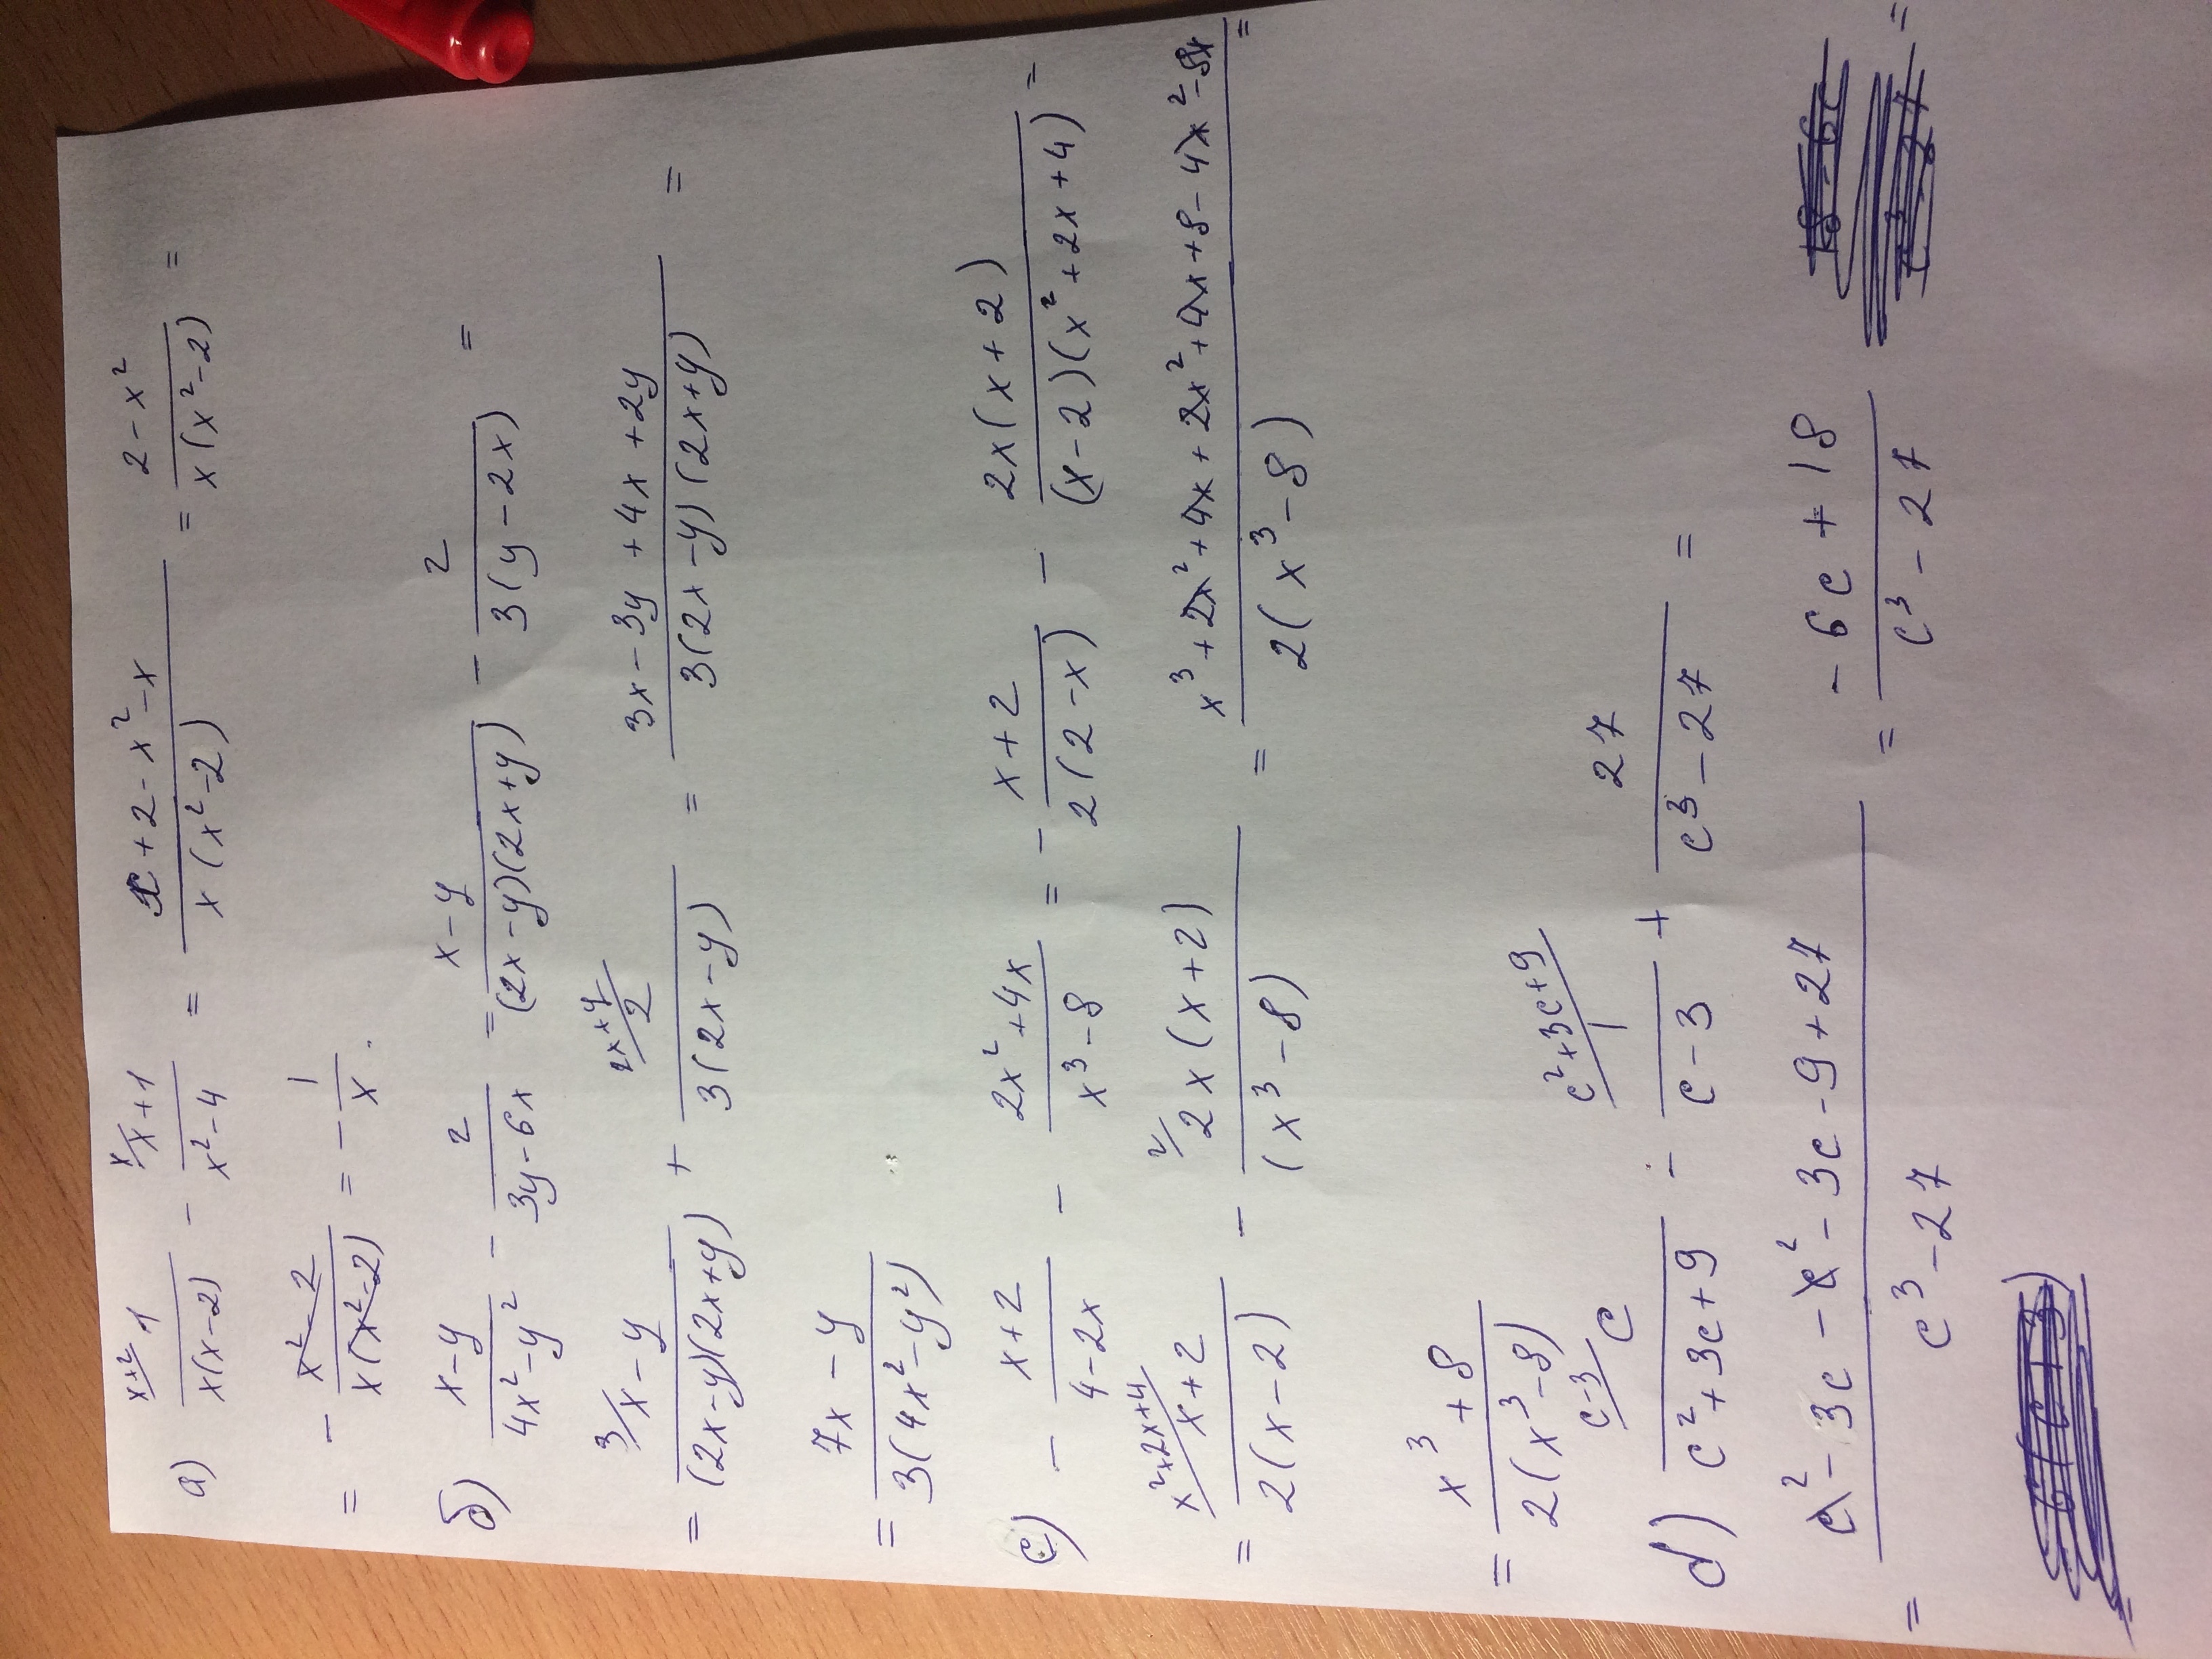 а) x+2/ 1/(x(x-2)) - x/ (x+1)/(x²-4) = (x+2-x²-x)/(x(x²-2)) = (2-x²)/(x(x²-2)) =
= - (x²-2)/(x(x²-2)) = - 1/x.
б) (x-y)/(4x²-y²) - 2/(3y-6x) = (x-y)/((2x-y)(2x+y)) - 2/(3(y-2x)) =
= 3/ (x-y)/((2x-y)(2x+y)) + 2x+y/ 2/(3(2x-y)) = (3x-3y+4x+2y)/(3(2x-y)(2x+y)) =
= (7x-y)/(3(4x²-y²))
c) - (x+2)/(4-2x) - (2x²+4x)/(x³-8) = - (x+2)/(2(2-x)) - (2x(x+2))/((x-2)(x²+2x+4)) =
= x²+2x+4/ (x+2)/(2(x-2)) - 2/ (2x(x+2))/((x³-8)) = (x³+2x²+4x+2x²+4x+8-4x²-8x)/(2(x³-8)) =
= (x³+8)/(2(x³-8))
d) c-3/ c/(c²+3c+9) - c²+3c+9/ 1/(c-3) + 27/(c³-27) =
= (c²-3c-c²-3c-9+27)/(c³-27) = (-6c+18)/(c³-27) =
=